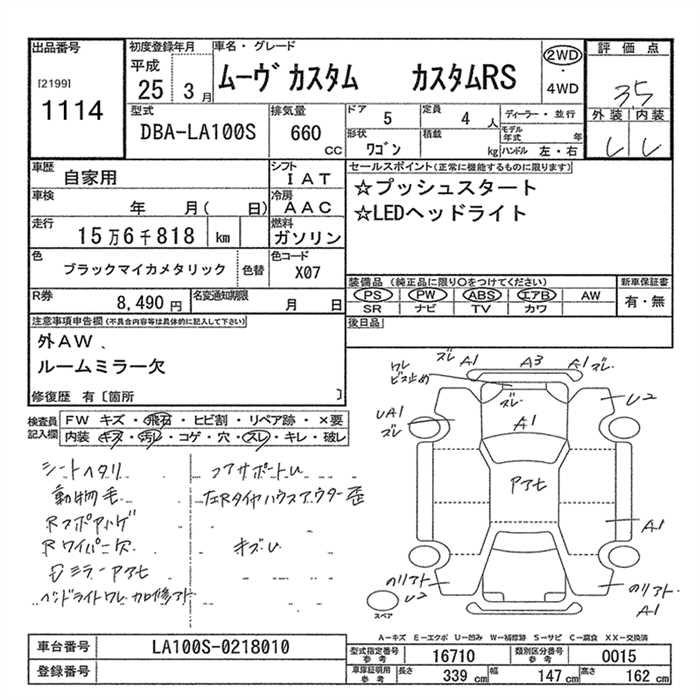 出品番号
[2199]
1114
初度登録年月
平成
25 3月
車名・グレード
ムーヴ カスタム カスタムRS
2WD
・
4WD
評価点
3.5
外装 内装
型式
DBA-LA100S
排気量
660
CC
ドア
5
定員
4人
ディーラー・並行
形状
ワゴン
積載
kg
モデル年式 年
ハンドル 左・右
車歴
自家用
シフト
IAT
車検
年 月( 日)
冷房
AAC
走行
15万6千818 km
燃料
ガソリン
色
ブラックマイカメタリック
色替
色コード
X07
R券
8,490円
名変通知期限
月 日
セールスポイント(正常に機能するものに限ります)
☆プッシュスタート
☆LEDヘッドライト
装備品 (純正品に限り○をつけてください)
PS PW ABS エアB AW
SR ナビ TV カワ
新車保証書
有・無
後日品
注意事項申告欄(不具合内容等は具体的に記入して下さい)
外AW、
ルームミラー欠
修復歴 有〔箇所 〕
検査員
記入欄
FW キズ・飛石・ヒビ割・リペア跡・×要
内装 キズ・汚レ・コゲ・穴・スレ・キレ・破レ
シートヘタリ
動物毛
Rワイパー欠
キズU
ワレ
ビス止め
ズレ A1 A3 A1 ズレ
ズレ
U2
UA1
ズレ
A1
アセ
A1
U2
A1
スペア
A-キズ E-エクボ U-凹み W-補修跡 S-サビ C-腐食 XX-交換済
車台番号
LA100S-0218010
登録番号
型式指定番号
参考
16710
類別区分番号
参考
0015
車庫証明用
参考
長さ 339 cm
幅 147 cm
高さ 162 cm